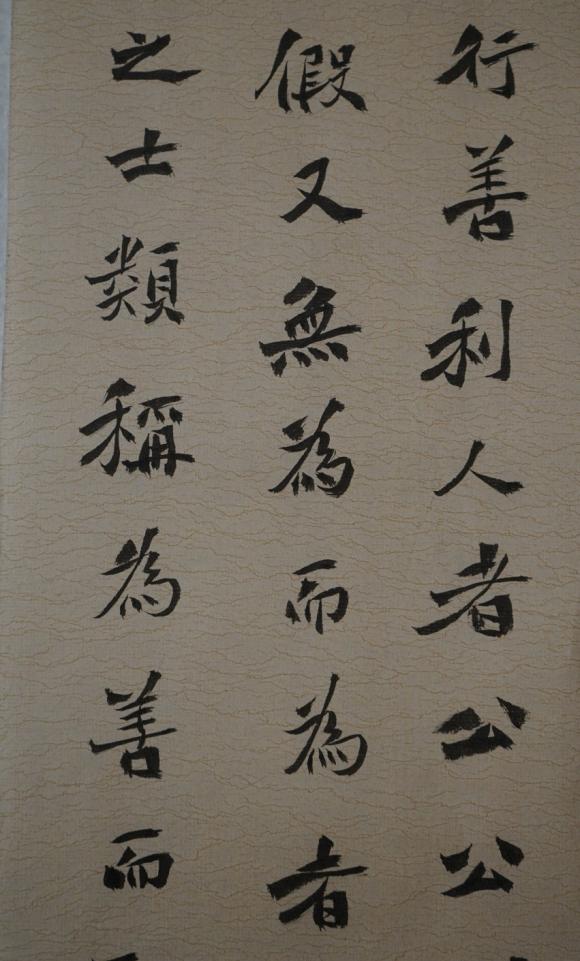 行善利人者公公
假又無為而為者
之士類稱為善而